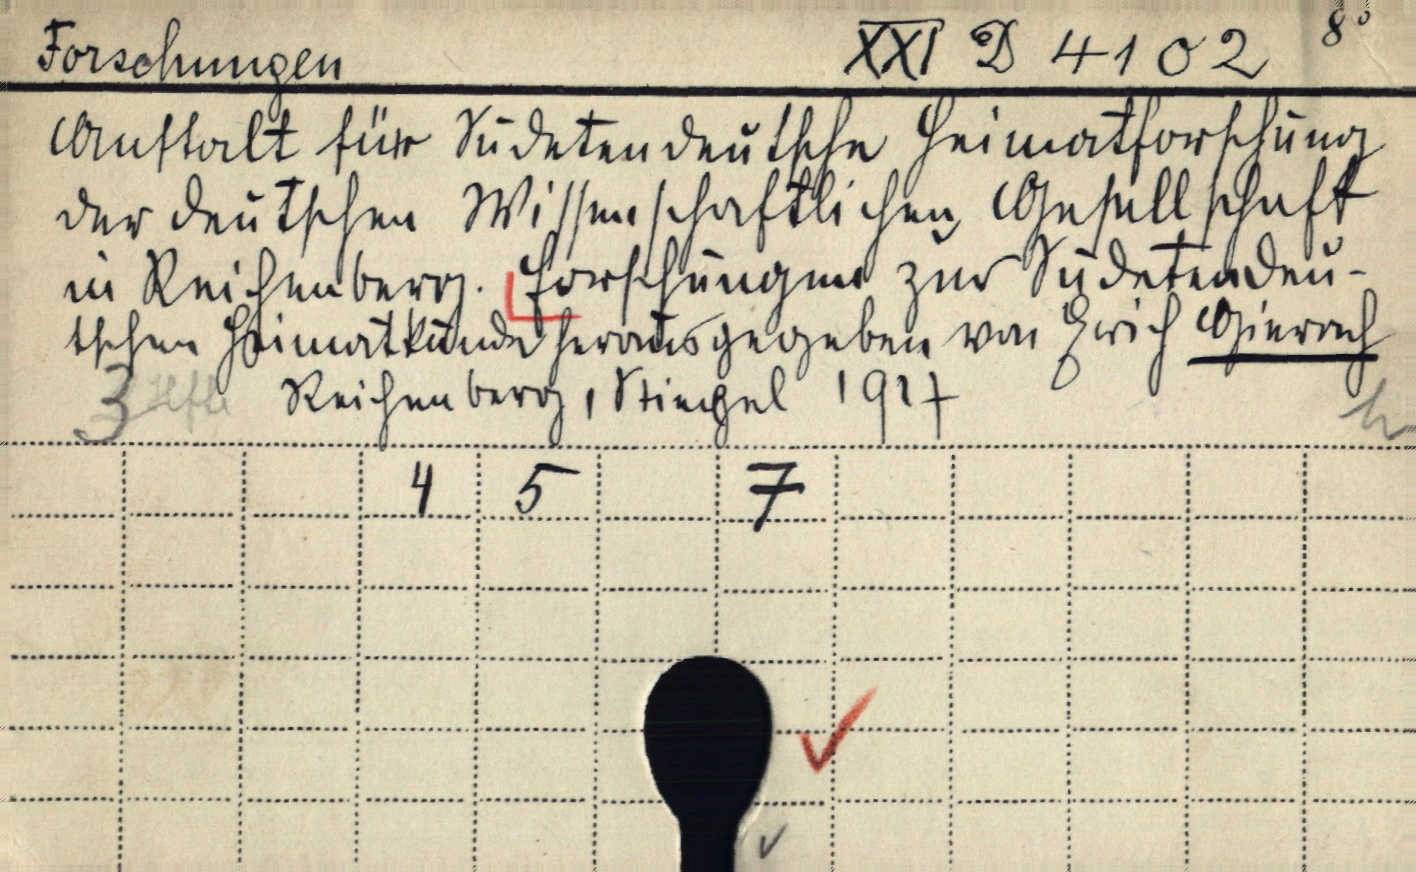 Forschungen XXI D 4102 8°
Anstalt für Sudetendeutsche Heimatforschung
der deutschen Wissenschaftlichen Gesellschaft
in Reichenberg. Forschungen zur Sudetendeu-
tschen Heimatkunde herausgegeben von Erich Gierach
3 Hefte Reichenberg, Stiepel 1927
4 5 7